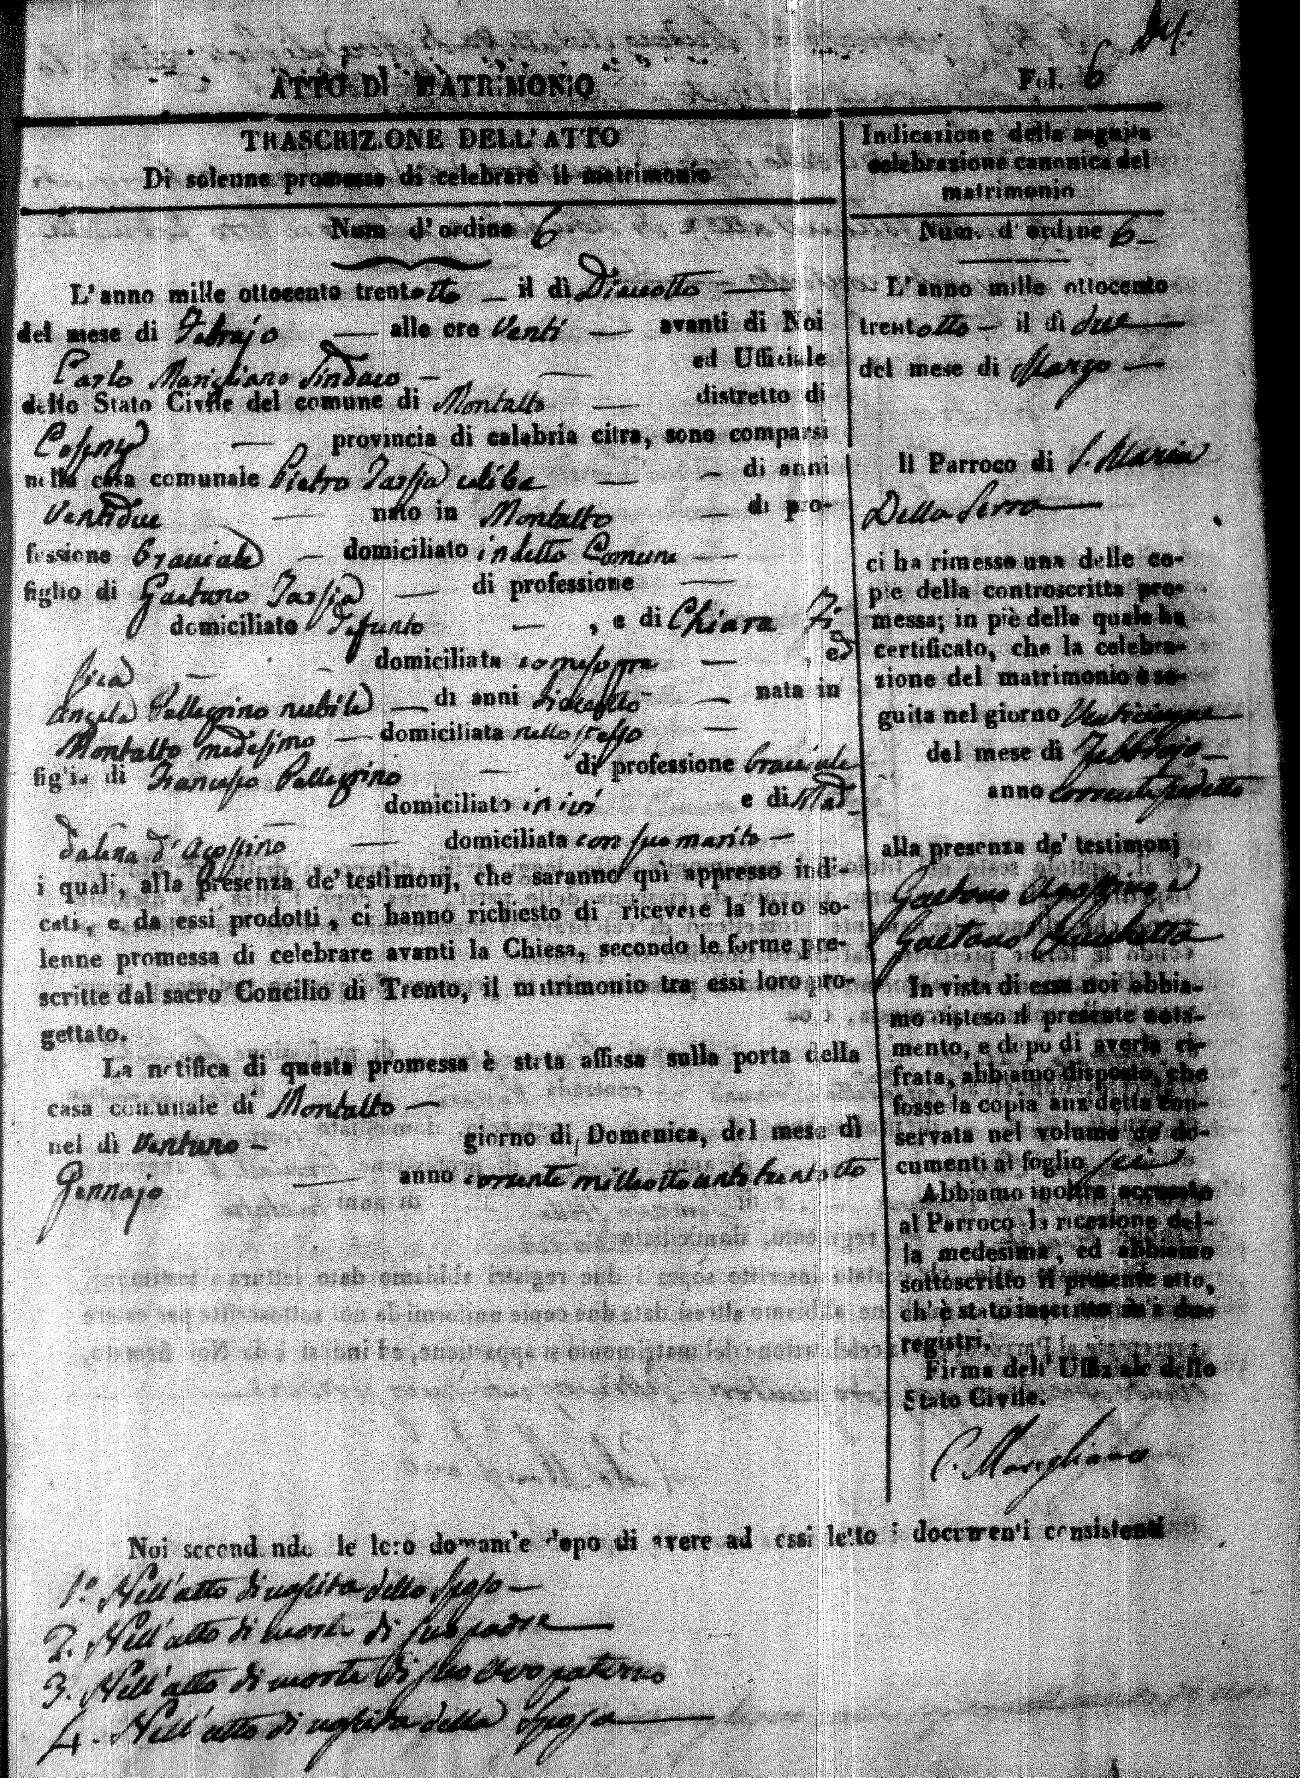 ATTO DI MATRIMONIO
Fol. 6
TRASCRIZIONE DELL'ATTO
Di solenne promessa di celebrare il matrimonio
Num d'ordine 6
L'anno mille ottocento trentotto il dì Dieciotto
del mese di Febrajo alle ore Venti avanti di Noi
Carlo Marigliano Sindaco ed Ufficiale
dello Stato Civile del comune di Montalto distretto di
Cosenza provincia di calabria citra, sono comparsi
nella casa comunale Pietro Tassia celibe di anni
Ventidue nato in Montalto di pro-
fessione Bracciale domiciliato in detto Comune
figlio di Gaetano Tassia di professione
domiciliato defunto , e di Chiara Fi
domiciliata come sopra , ed
Angela Pellegrino nubile di anni dieciotto nata in
Montalto medesimo domiciliata nello stesso
figlia di Francesco Pellegrino di professione bracciale
domiciliato in ivi e di Mad
dalena d'Agostino domiciliata con suo marito
i quali, alla presenza de' testimonj, che saranno quì appresso indi-
cati, e da essi prodotti, ci hanno richiesto di ricevere la loro so-
lenne promessa di celebrare avanti la Chiesa, secondo le forme pre-
scritte dal sacro Concilio di Trento, il matrimonio tra essi loro pro-
gettato.
La notifica di questa promessa è stata affissa sulla porta della
casa comunale di Montalto
nel dì Ventuno giorno di Domenica, del mese di
Gennajo anno corrente milleottocento trentotto
Indicazione della seguita
celebrazione canonica del
matrimonio
Num. d'ordine 6
L'anno mille ottocento
trentotto il dì due
del mese di Marzo
Il Parroco di S. Maria
Della Serra
ci ha rimesso una delle co-
pie della controscritta pro-
messa; in piè della quale ha
certificato, che la celebra-
zione del matrimonio è se-
guita nel giorno Venticinque
del mese di Febbrajo
anno corrente sudetto
alla presenza de' testimonj
Gaetano Agostino e
Gaetano
In vista di essa noi abbia-
mo disteso il presente nota-
mento, e dopo di averla ci-
frata, abbiamo disposto, che
fosse la copia anzidetta con-
servata nel volume de' do-
cumenti al foglio sei
Abbiamo inoltre accusato
al Parroco la ricezione del-
la medesima, ed abbiamo
sottoscritto il presente atto,
ch' è stato inscritto su'i due
registri.
Firma dell' Uffiziale dello
Stato Civile.
C. Marigliano
Noi secondando le loro domande dopo di avere ad essi letto i documenti consistenti
1.º Nell'atto di nascita dello Sposo
2. Nell'atto di morte di suo padre
3. Nell'atto di morte di suo avo paterno
4. Nell'atto di nascita della Sposa